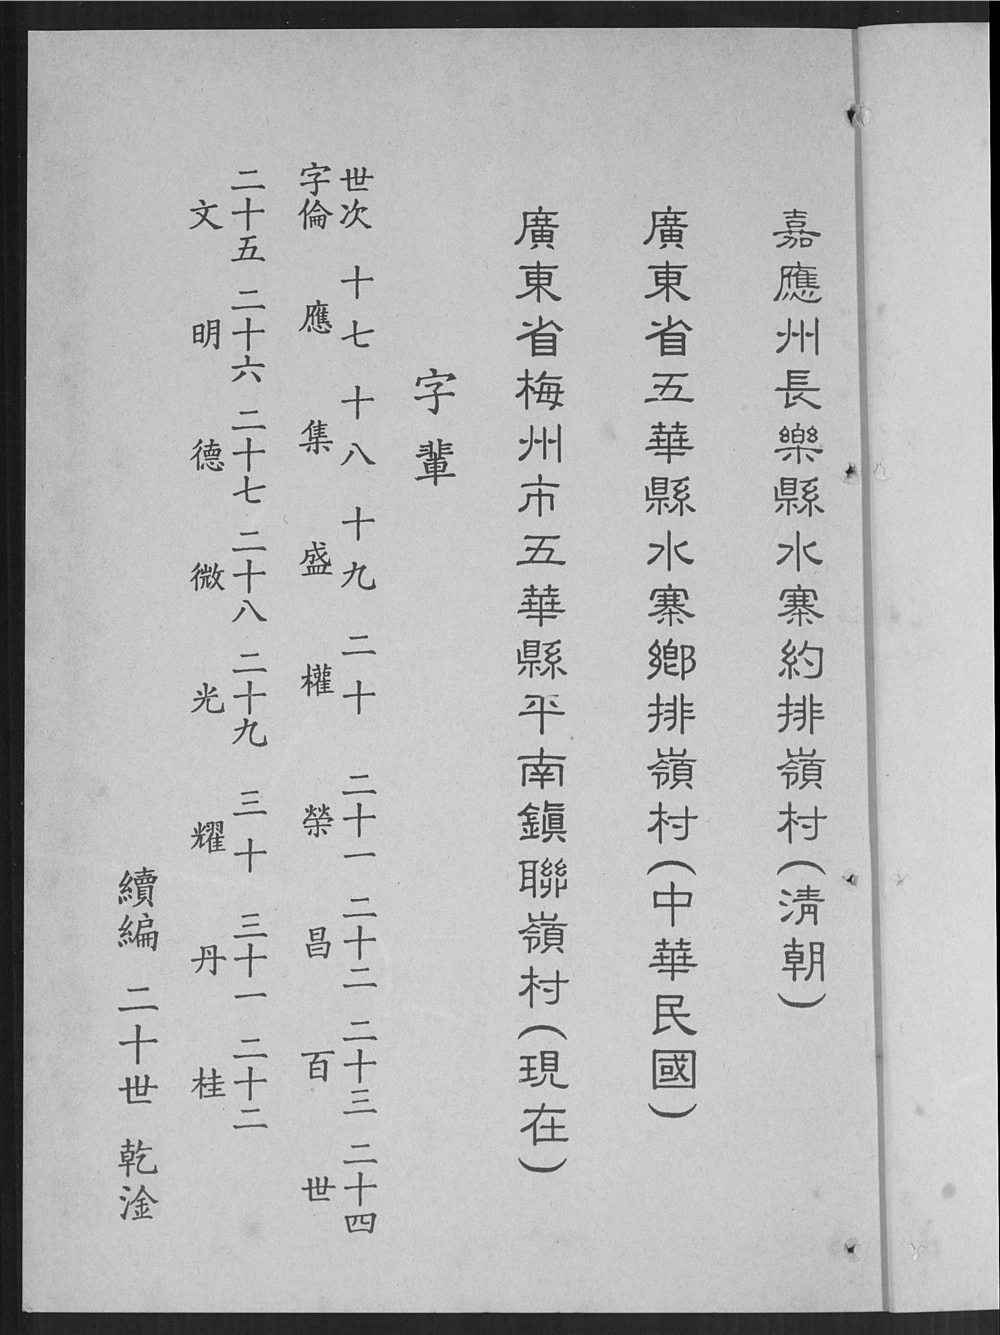 嘉應州長樂縣水寨約排嶺村(清朝)
廣東省五華縣水寨鄉排嶺村(中華民國)
廣東省梅州市五華縣平南鎮聯嶺村(現在)
字輩
世次 十七 十八 十九 二十 二十一 二十二 二十三 二十四
字倫 應 集 盛 權 榮 昌 百 世
二十五 二十六 二十七 二十八 二十九 三十 三十一 二十二
文 明 德 微 光 耀 丹 桂
續編 二十世 乾淦